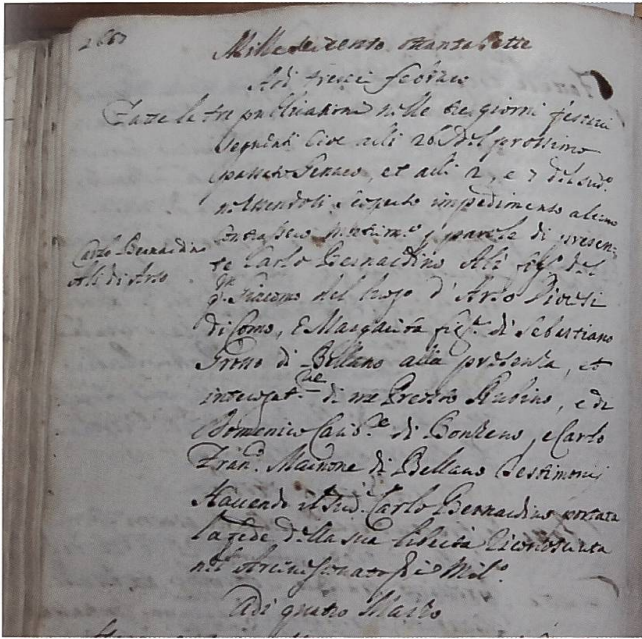 1687
Mille seicento ottanta sette
Adi tredici febraro
Fatte le tre publicationi nelle tre giorni festivi
seguenti cioe alli 26 del prossimo
passato Genaro, et alli 2, e 7 del sud.º
non havendosi scoperto impedimento alcuno
contrassero matrim.º p parole di presen
te Carlo Bernardino Ali fig.º del
q. Giacomo del luogo d'Arso Diocesi
di Como, e Margarita fig.ª di Sebastiano
di Bellano alla presenza, et
interogat.ne di me Prevosto Rubino, e di
Domenico di Bonzeno, e Carlo
Fran.º Mainone di Bellano testimonij
Havendo il sud. Carlo Bernardino portata
la fede della sua libertà riconosciuta
nel Arcivescovato di Mil.º
Adi quatro Marzo
Carlo Bernardino
Ali di Arso